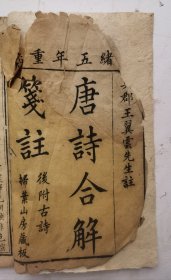 緒五年重
郡王翼雲先生註
唐詩合解
箋註
後附古詩
掃葉山房藏板